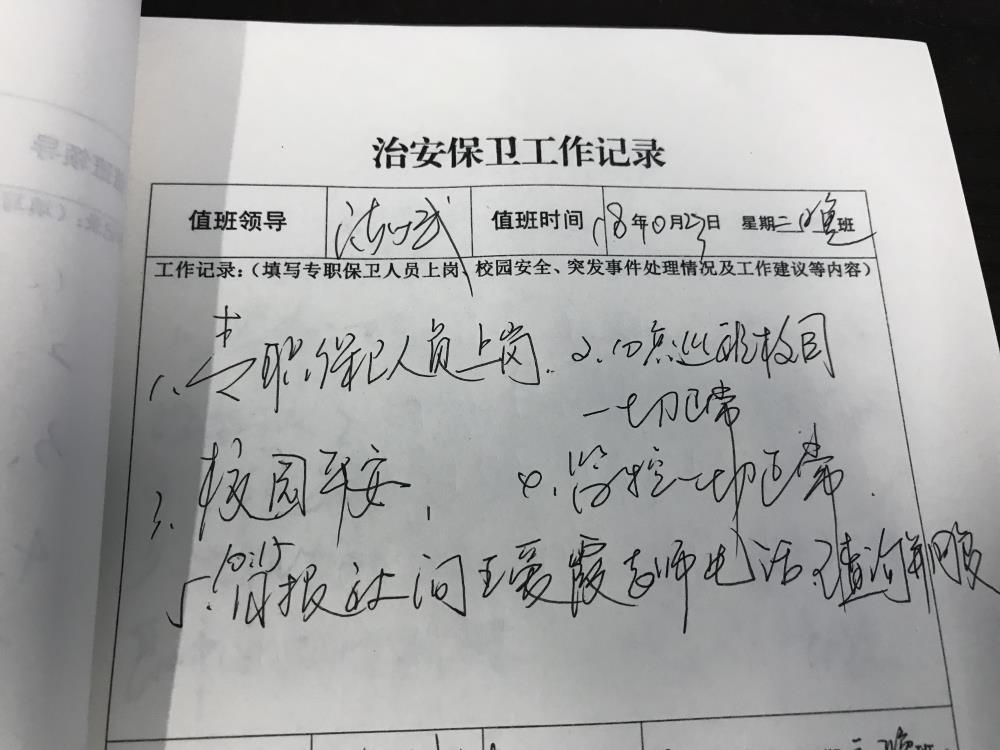 治安保卫工作记录
值班领导 值班时间 18年10月23日 星期二晚班
工作记录:(填写专职保卫人员上岗、校园安全、突发事件处理情况及工作建议等内容)
1、专职保卫人员上岗. 2、10点巡视校园
一切正常
3、校园平安, 4、监控一切正常.
10:15
5、报社问王爱霞老师电话